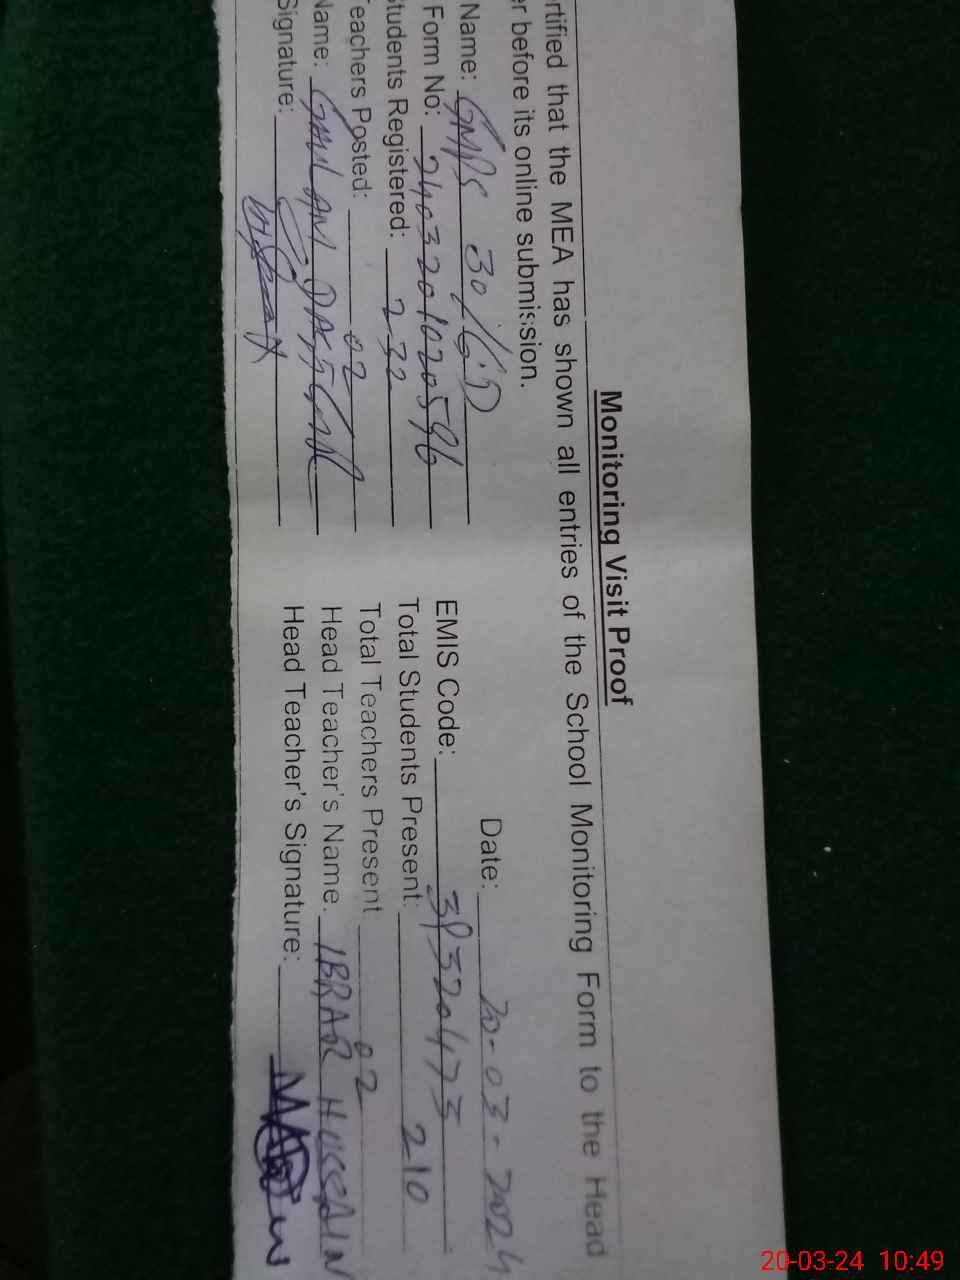 Monitoring Visit Proof
rtified that the MEA has shown all entries of the School Monitoring Form to the Head
er before its online submission.
Date: 20-03-2024
Name: GMPS 30/G.D EMIS Code: 39320473
Form No: 2403201020596 Total Students Present: 210
tudents Registered: 232 Total Teachers Present 02
eachers Posted: 02 Head Teacher's Name. IBRAR HUSSAIN
Name: GHULAM DASTGIR Head Teacher's Signature:
Signature:
20-03-24 10:49